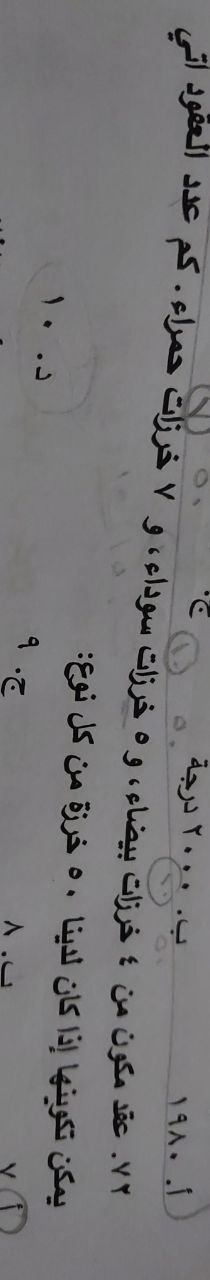 أ. ١٩٨٠ ب. ٢٠٠٠ درجة ج.
٧٢. عقد مكون من ٤ خرزات بيضاء، و ٥ خرزات سوداء، و ٧ خرزات حمراء. كم عدد العقود التي
يمكن تكوينها إذا كان لدينا ٥٠ خرزة من كل نوع:
أ. ٧ ب. ٨ ج. ٩ د. ١٠